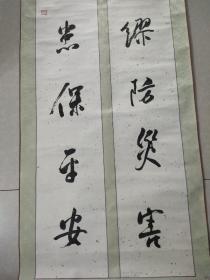 繆防災害
忠保平安